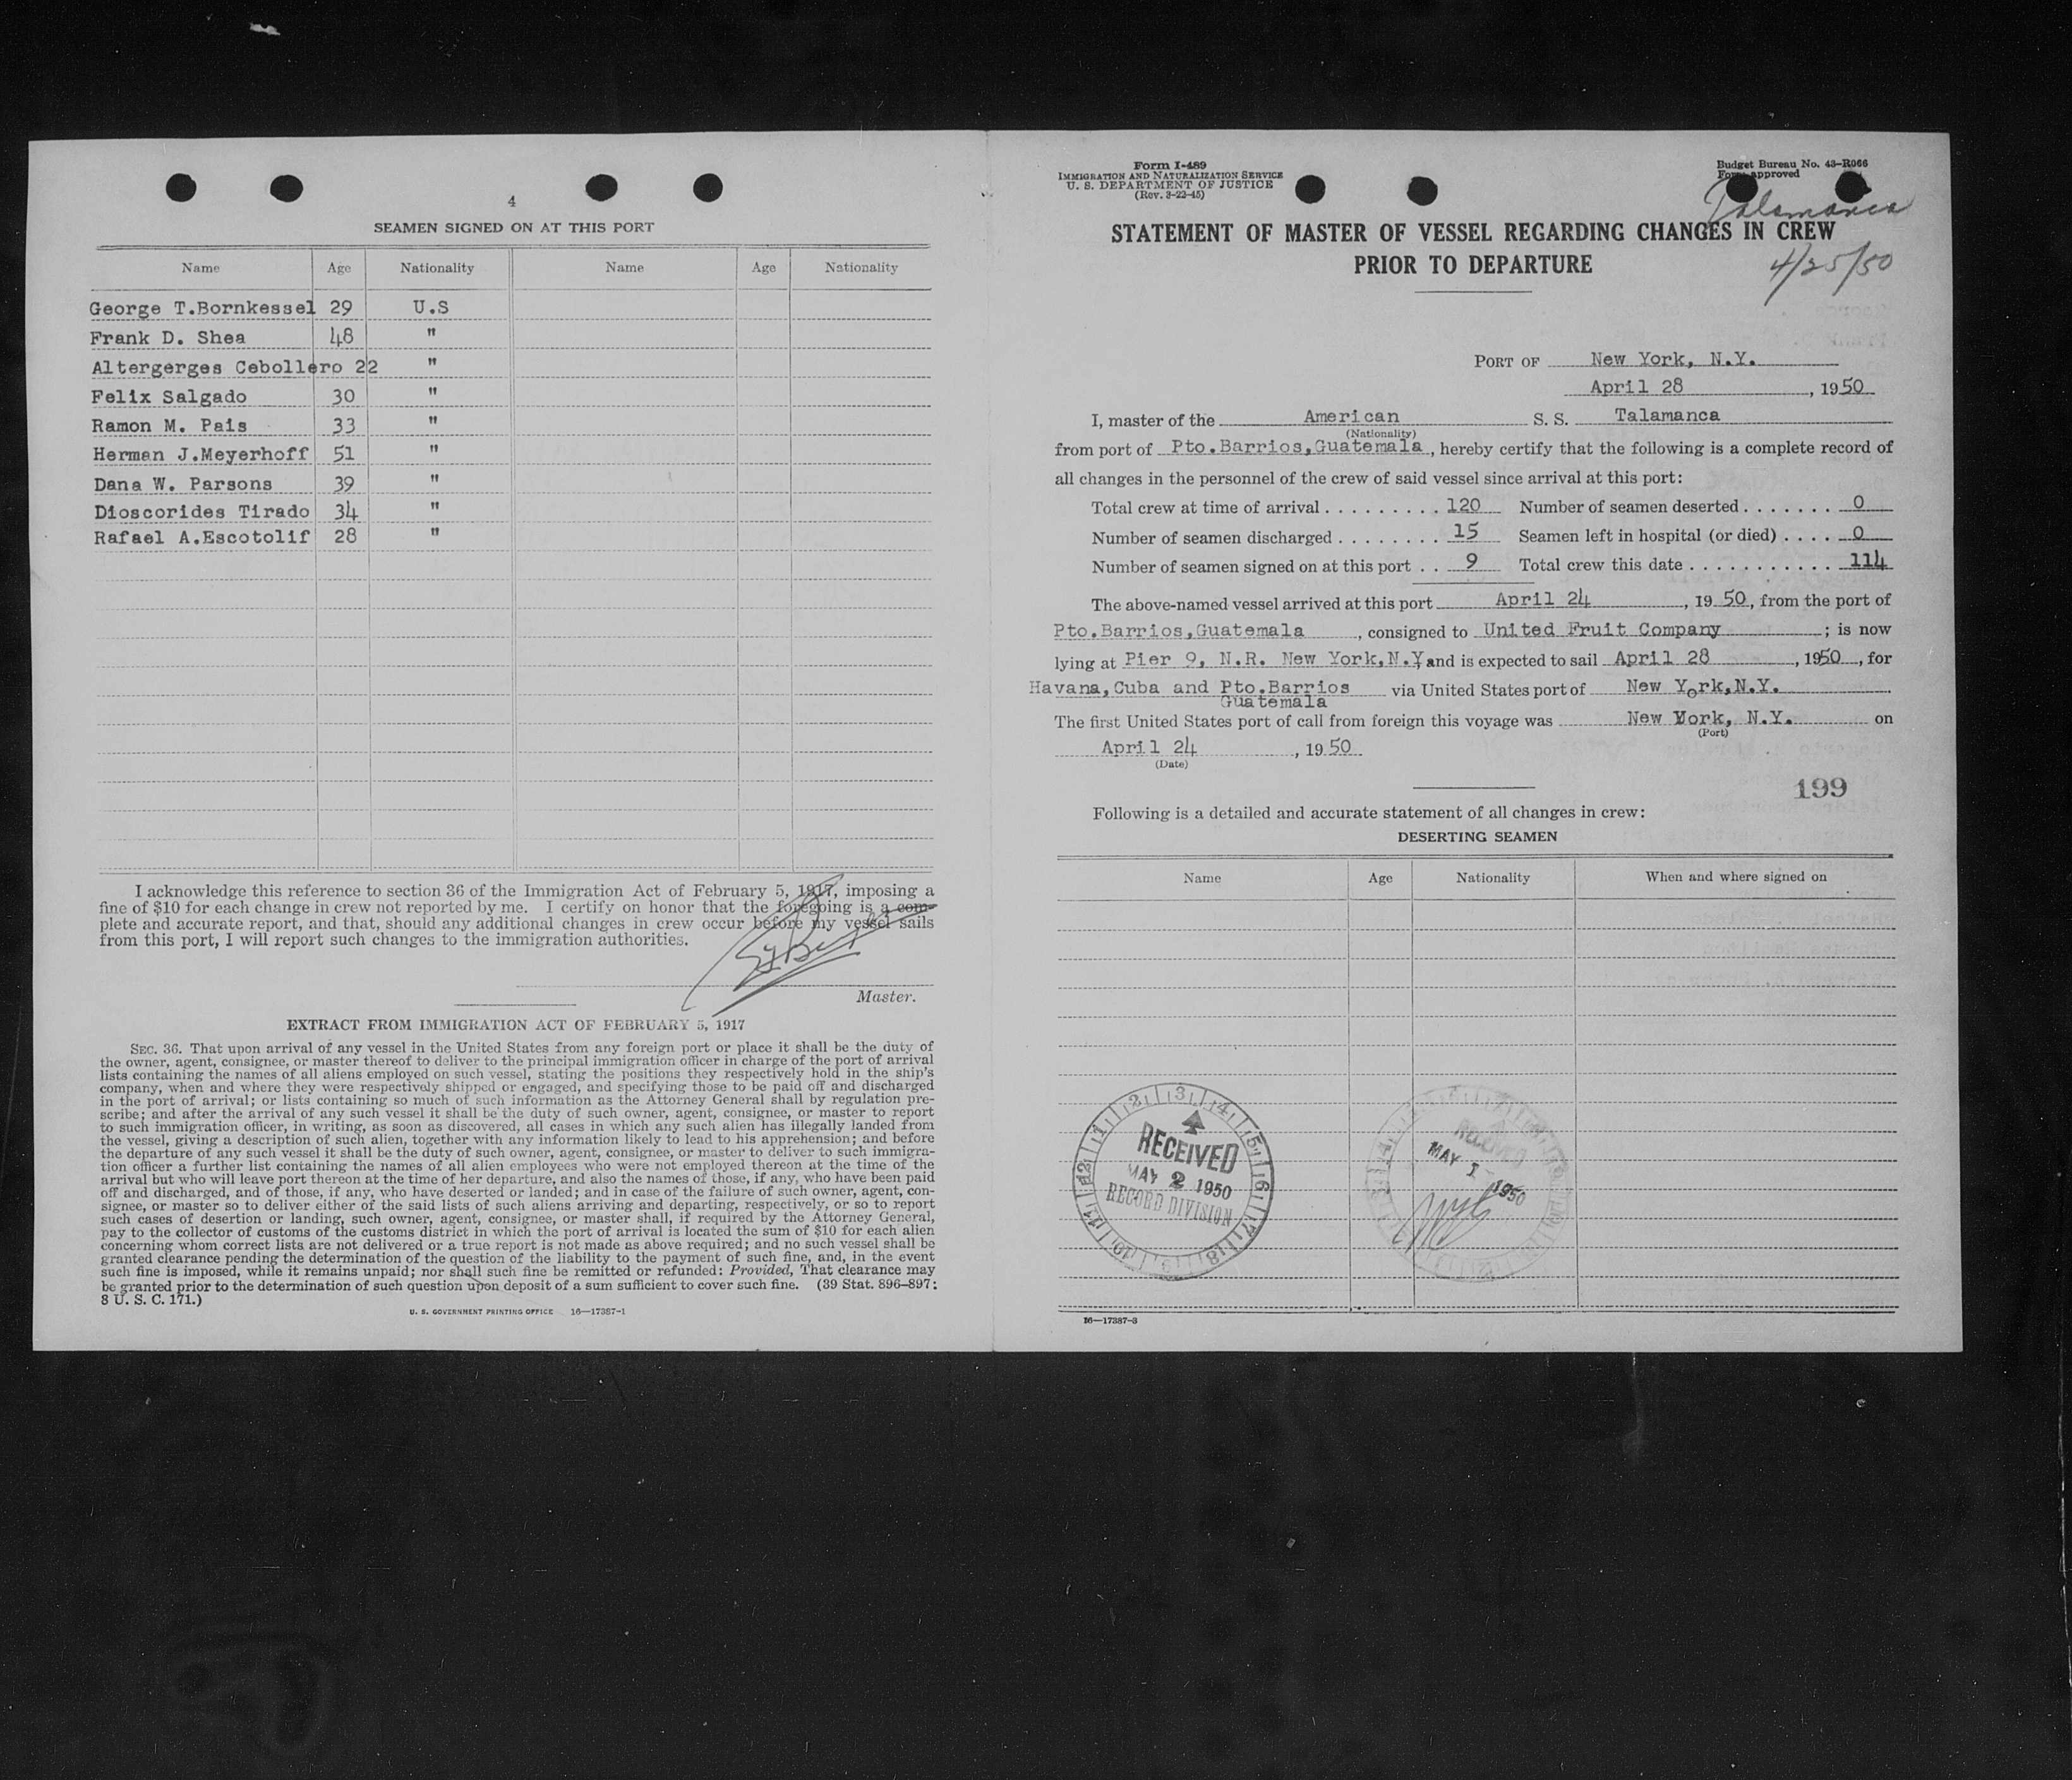 4
SEAMEN SIGNED ON AT THIS PORT
Name Age Nationality Name Age Nationality
George T.Bornkessel 29 U.S
Frank D. Shea 48 "
Altergerges Cebollero 22 "
Felix Salgado 30 "
Ramon M. Pais 33 "
Herman J.Meyerhoff 51 "
Dana W. Parsons 39 "
Dioscorides Tirado 34 "
Rafael A.Escotolif 28 "
I acknowledge this reference to section 36 of the Immigration Act of February 5, 1917, imposing a
fine of $10 for each change in crew not reported by me. I certify on honor that the foregoing is a com-
plete and accurate report, and that, should any additional changes in crew occur before my vessel sails
from this port, I will report such changes to the immigration authorities.
Master.
EXTRACT FROM IMMIGRATION ACT OF FEBRUARY 5, 1917
SEC. 36. That upon arrival of any vessel in the United States from any foreign port or place it shall be the duty of
the owner, agent, consignee, or master thereof to deliver to the principal immigration officer in charge of the port of arrival
lists containing the names of all aliens employed on such vessel, stating the positions they respectively hold in the ship's
company, when and where they were respectively shipped or engaged, and specifying those to be paid off and discharged
in the port of arrival; or lists containing so much of such information as the Attorney General shall by regulation pre-
scribe; and after the arrival of any such vessel it shall be the duty of such owner, agent, consignee, or master to report
to such immigration officer, in writing, as soon as discovered, all cases in which any such alien has illegally landed from
the vessel, giving a description of such alien, together with any information likely to lead to his apprehension; and before
the departure of any such vessel it shall be the duty of such owner, agent, consignee, or master to deliver to such immigra-
tion officer a further list containing the names of all alien employees who were not employed thereon at the time of the
arrival but who will leave port thereon at the time of her departure, and also the names of those, if any, who have been paid
off and discharged, and of those, if any, who have deserted or landed; and in case of the failure of such owner, agent, con-
signee, or master so to deliver either of the said lists of such aliens arriving and departing, respectively, or so to report
such cases of desertion or landing, such owner, agent, consignee, or master shall, if required by the Attorney General,
pay to the collector of customs of the customs district in which the port of arrival is located the sum of $10 for each alien
concerning whom correct lists are not delivered or a true report is not made as above required; and no such vessel shall be
granted clearance pending the determination of the question of the liability to the payment of such fine, and, in the event
such fine is imposed, while it remains unpaid; nor shall such fine be remitted or refunded: Provided, That clearance may
be granted prior to the determination of such question upon deposit of a sum sufficient to cover such fine. (39 Stat. 896-897;
8 U. S. C. 171.)
U. S. GOVERNMENT PRINTING OFFICE 16—17387-1
Form I-489
IMMIGRATION AND NATURALIZATION SERVICE
U. S. DEPARTMENT OF JUSTICE
(Rev. 3-22-45)
Budget Bureau No. 43-R066
Form approved
Talamanca
STATEMENT OF MASTER OF VESSEL REGARDING CHANGES IN CREW
PRIOR TO DEPARTURE
4/25/50
PORT OF New York, N.Y.
April 28, 1950
I, master of the American S. S. Talamanca
(Nationality)
from port of Pto.Barrios,Guatemala, hereby certify that the following is a complete record of
all changes in the personnel of the crew of said vessel since arrival at this port:
Total crew at time of arrival . . . . . . . . . 120 Number of seamen deserted . . . . . . . 0
Number of seamen discharged . . . . . . . . 15 Seamen left in hospital (or died) . . . . 0
Number of seamen signed on at this port . . 9 Total crew this date . . . . . . . . . . . 114
The above-named vessel arrived at this port April 24, 1950, from the port of
Pto.Barrios,Guatemala, consigned to United Fruit Company; is now
lying at Pier 9, N.R. New York,N.Y, and is expected to sail April 28, 1950, for
Havana,Cuba and Pto.Barrios via United States port of New York,N.Y.
Guatemala
The first United States port of call from foreign this voyage was New York, N.Y. on
(Port)
April 24, 1950
(Date)
199
Following is a detailed and accurate statement of all changes in crew:
DESERTING SEAMEN
Name Age Nationality When and where signed on
RECEIVED
MAY 2 1950
RECORD DIVISION
RECEIVED
MAY 1 1950
16—17387-3